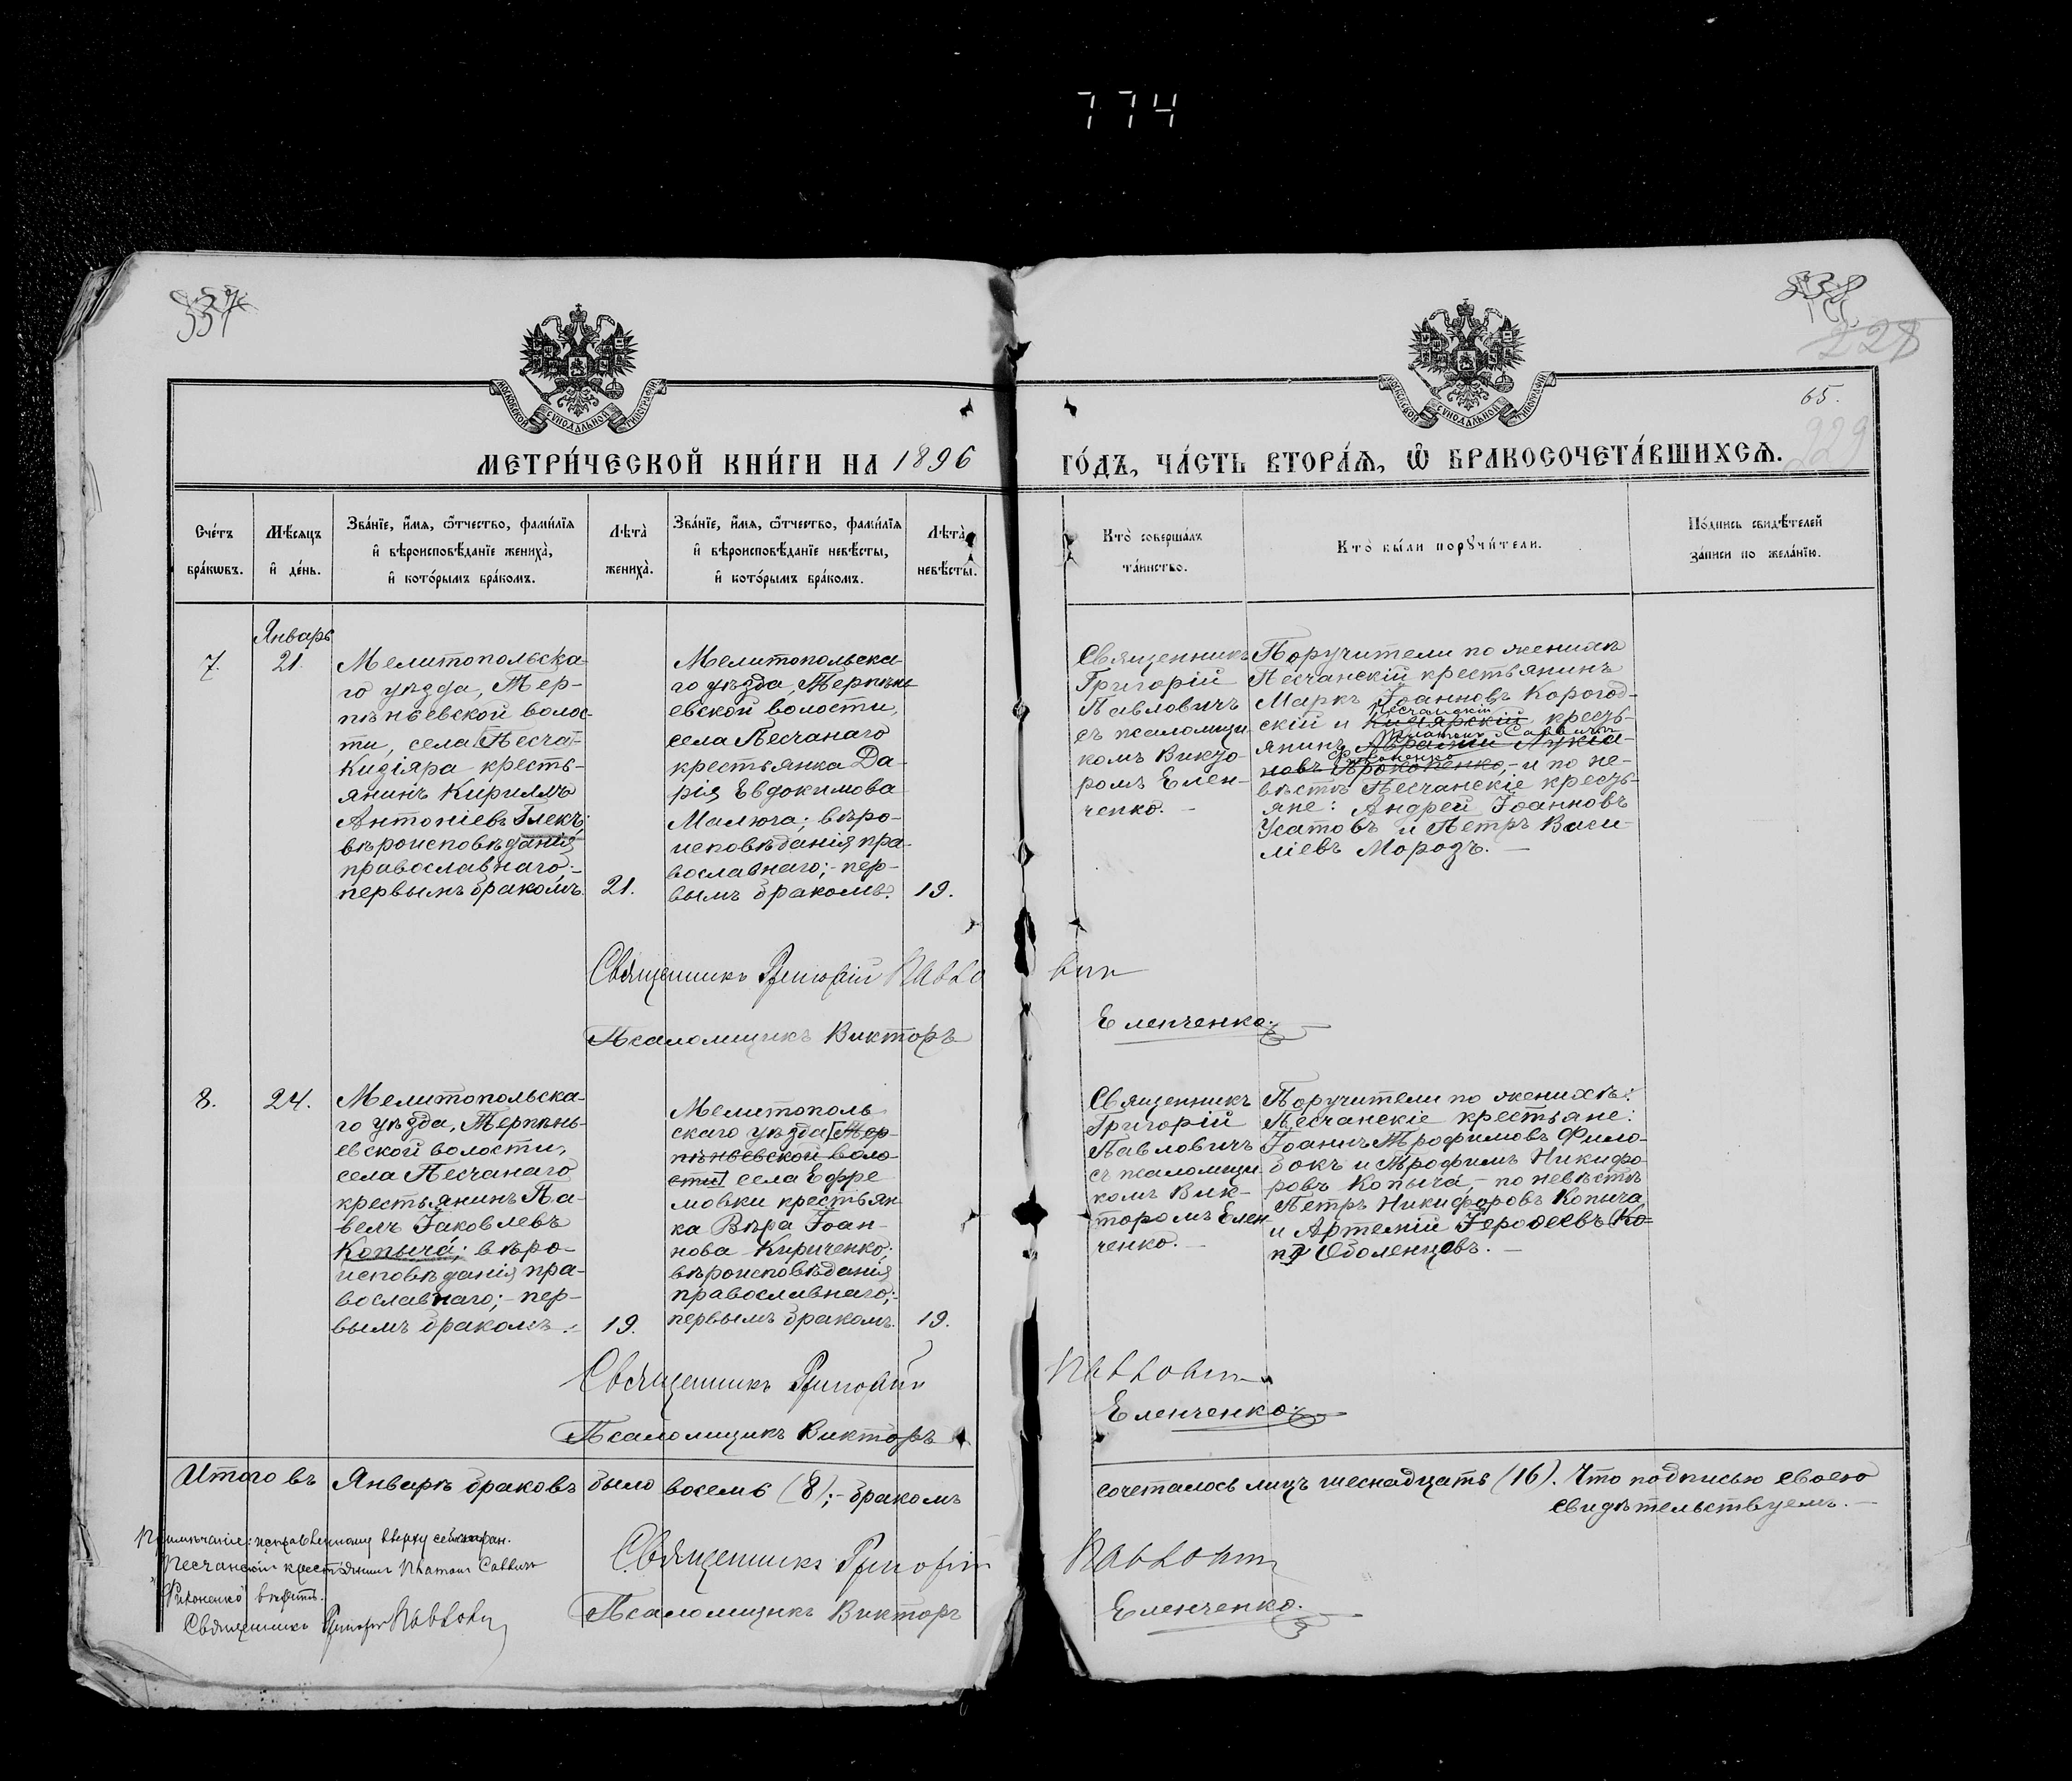 774
337
338
228
65.
229
МОСКОВСКОЙ СѴНОДАЛЬНОЙ ТИПОГРАФІИ
МОСКОВСКОЙ СѴНОДАЛЬНОЙ ТИПОГРАФІИ
МЕТРИ́ЧЕСКОЙ КНИ́ГИ НА 1896 ГО́ДЪ, ЧА́СТЬ ВТОРА́Ѧ, Ѽ БРАКОСОЧЕТА́ВШИХСѦ.
Сче́тъ
бра́кѡвъ.
Мѣ́сѧцъ
и҆ де́нь.
Зва́нїе, и҆́мѧ, ѻ҆́тчество, фами́лїѧ
и҆ вѣроисповѣ́данїе жениха̀,
и҆ кото́рымъ бра́комъ.
Лѣта̀
жениха̀.
Зва́нїе, и҆́мѧ, ѻ҆́тчество, фами́лїѧ
и҆ вѣроисповѣ́данїе невѣ́сты,
и҆ кото́рымъ бра́комъ.
Лѣта̀
невѣ́сты.
Кто̀ соверша́лъ
та́инство.
Кто̀ бы́ли порꙋчи́тели.
По́дпись свидѣ́телей
за́писи по жела́нїю.
7.
Январь
21.
Мелитопольска-
го уѣзда, Тер-
пѣньевской волос-
ти, села Песча-
Кизіяра кресть-
янинъ Кириллъ
Антоніевъ Глекъ;
вѣроисповѣданія
православнаго;-
первымъ бракомъ.
21.
Мелитопольска-
го уѣзда, Терпѣнь-
евской волости,
села Песчанаго
крестьянка Да-
рія Евдокимова
Малюга; вѣро-
исповѣданія пра-
вославнаго;- пер-
вымъ бракомъ.
19.
Священникъ
Григорій
Павловичъ
съ псаломщи-
комъ Викто-
ромъ Елен-
ченко.-
Поручители по женихѣ
Песчанскій крестьянинъ
Маркъ Іоанновъ Корогод-
Песчанскій
скій и Кизіярскій кресть-
Платонъ Саввичъ
янинъ Авраамій Лукіа-
новъ Прокопенко,- и по не-
вѣстѣ Песчанскіе кресть-
яне: Андрей Іоанновъ
Усатовъ и Петръ Васи-
ліевъ Морозъ.-
Священникъ Григорій Павлович
Псаломщикъ Викторъ Еленченко.
8.
24.
Мелитопольска-
го уѣзда, Терпѣнь-
евской волости,
села Песчанаго
крестьянинъ Па-
велъ Іаковлевъ
Копыча; вѣро-
исповѣданія пра-
вославнаго;- пер-
вымъ бракомъ.
19.
Мелитополь
скаго уѣзда [Тер-
пѣньевской воло
сти] села Ефре
мовки крестьян
ка Вѣра Іоан-
нова Кириченко;
вѣроисповѣданія
православнаго;-
первымъ бракомъ.
19.
Священникъ
Григорій
Павловичъ
съ псаломщи
комъ Вик-
торомъ Елен
ченко.-
Поручители по женихѣ:
Песчанскіе крестьяне:
Іоаннъ Трофимовъ Фило-
бокъ и Трофимъ Никифо-
ровъ Копыча,- по невѣстѣ
Петръ Никифоровъ Копыча
и Артемій Іеродеевъ (Ко-
Оболенцевъ.-
Священникъ Григорій Павлович
Псаломщикъ Викторъ Еленченко.
Итого въ Январѣ браковъ было восемь (8);- бракомъ сочеталось лицъ шеснадцать (16). Что подписью своею
свидѣтельствуемъ.-
Примѣчаніе: исправленному вверху сей стран.
Песчанскій крестьянинъ Платонъ Саввич
вѣрить.
Священникъ Григорій Павлович
Священникъ Григорій Павлович
Псаломщикъ Викторъ Еленченко.